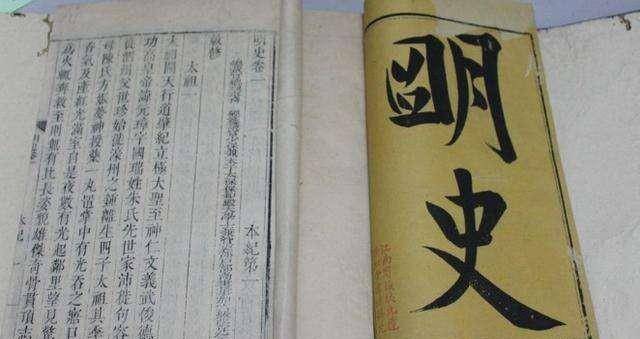 明史
明史卷一 本紀第一
敕修
太祖一
太祖開天行道肇紀立極大聖至神仁文義武俊德
功高皇帝諱元璋字國瑞姓朱氏先世家沛徙句容
泗州父世珍始徙濠州之鍾離生四子太祖其季
母陳氏方娠夢神授藥一丸置掌中有光吞之寤口
香氣及產紅光滿室自是夜數有光起鄰里望見驚
以為火輒奔救至則無有比長姿貌雄傑奇骨貫頂志
本紀